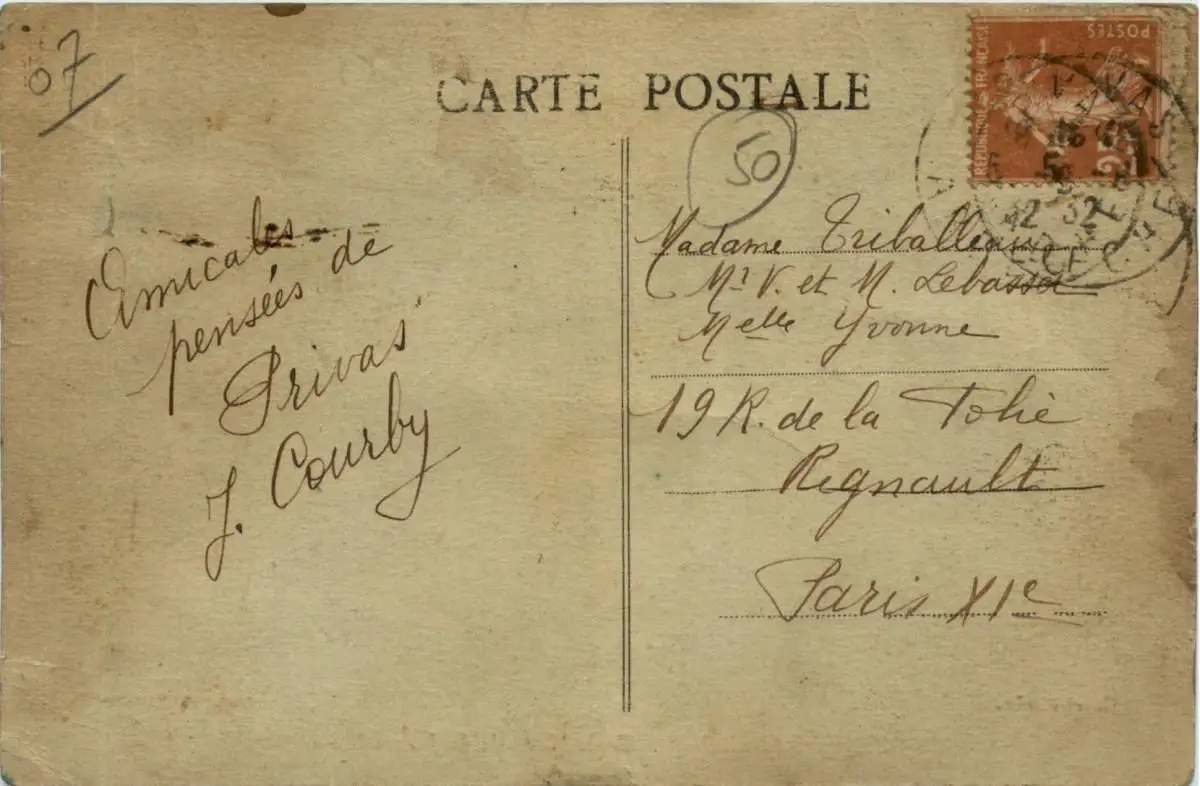 07
CARTE POSTALE
50
POSTES
REPUBLIQUE FRANÇAISE
Amicales
pensées de
Privas
J. Courby
Madame Triballeau
Mr V. et M. Lebassot
Melle Yvonne
19 R. de la Folie
Regnault
Paris XIe